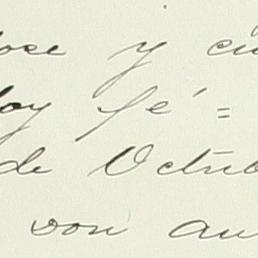 ose y cu
doy fé=
de Octub
von au